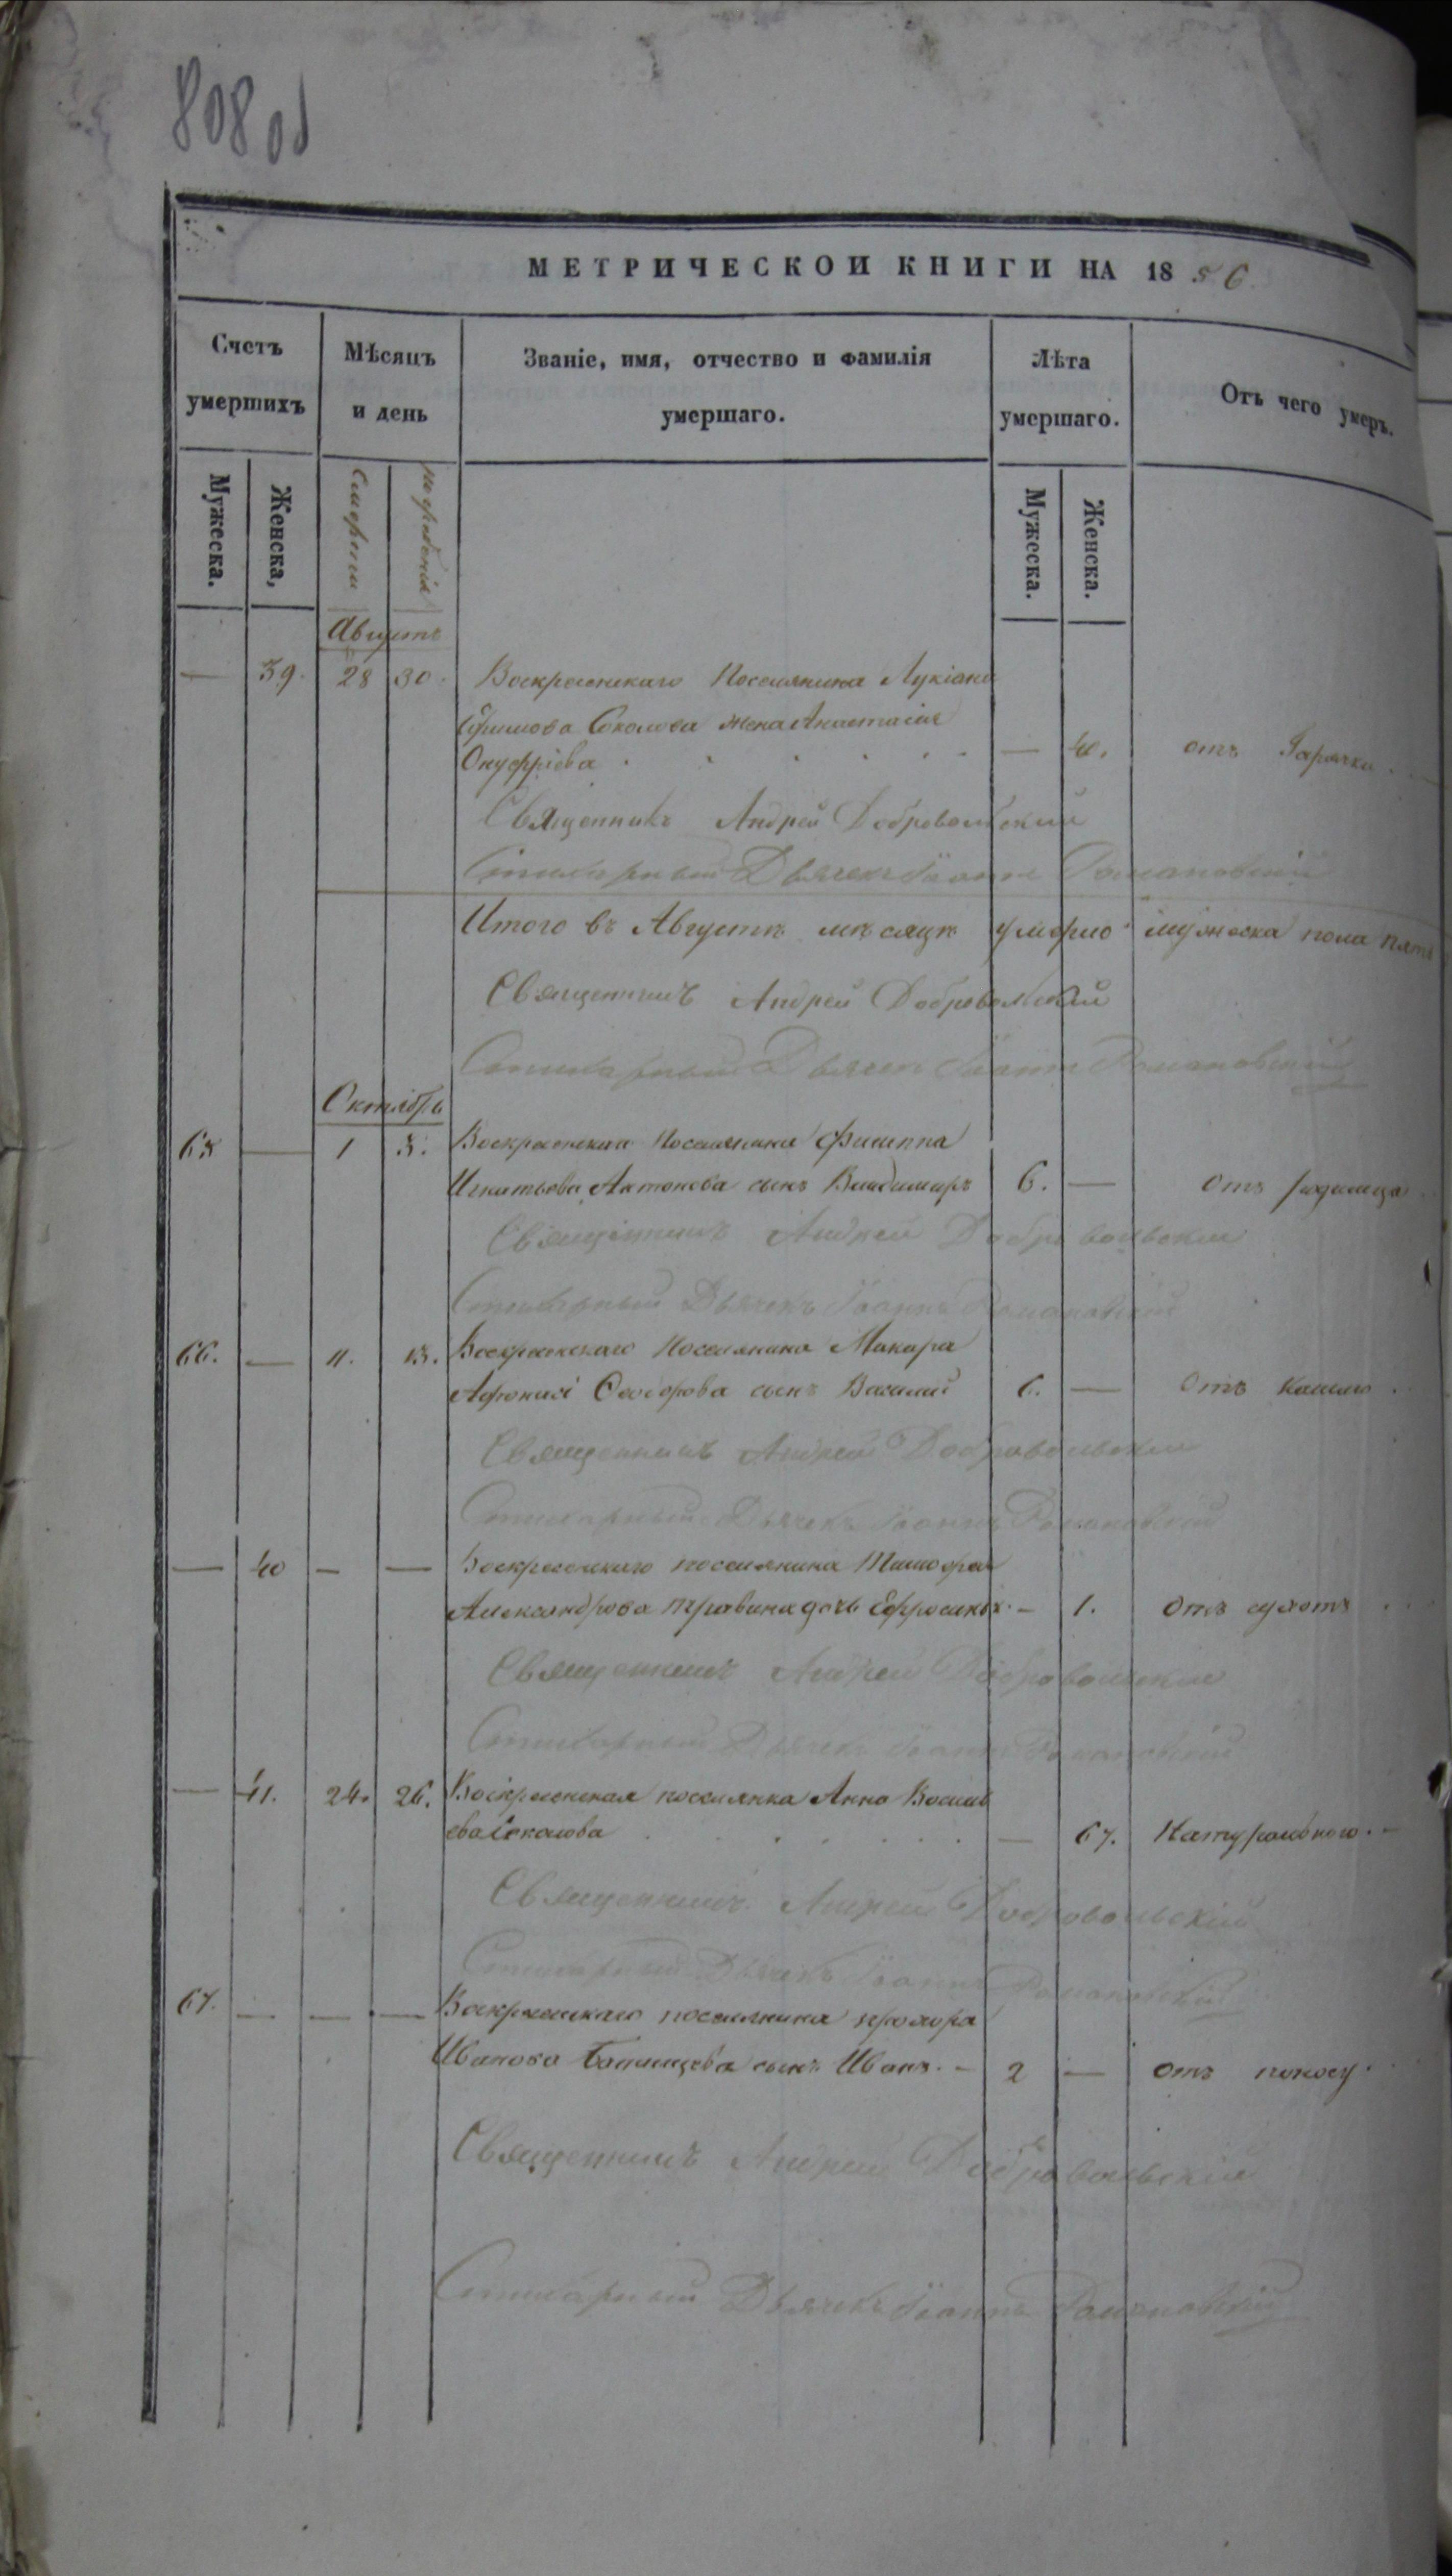 808 об
МЕТРИЧЕСКОЙ КНИГИ НА 1856.
Счетъ умершихъ
Мѣсяцъ и день
Званіе, имя, отчество и фамилія умершаго.
Лѣта умершаго.
Отъ чего умеръ.
Мужеска. Женска, смерти погребенія Мужеска. Женска.
Августъ
— 39. 28 30. Воскресенскаго Поселянина Лукіана
Ефимова Соколова жена Анастасія
Онуфріева — 40. отъ Гарячки
Священникъ Андрей Добровольский
Стихарный Дьячекъ Іоаннъ Романовскій
Итого въ Августѣ мѣсяцѣ умерло мужеска пола пять
Священникъ Андрей Добровольский
Стихарный Дьячекъ Іоаннъ Романовскій
Октябрь
65 — 1 3. Воскресенскаго Поселянина Филиппа
Игнатьева Антонова сынъ Владимиръ 6. — Отъ родимца
Священникъ Андрей Добровольский
Стихарный Дьячекъ Іоаннъ Романовскій
66. — 11. 13. Воскресенскаго Поселянина Макара
Афонасі Ѳеодорова сынъ Василий 6. — Отъ кашлю
Священникъ Андрей Добровольский
Стихарный Дьячекъ Іоаннъ Романовскій
— 40 — — Воскресенскаго поселянина Тимофея
Александрова Травина дочь Ефросинья — 1. Отъ сухотъ
Священникъ Андрей Добровольский
Стихарный Дьячекъ Іоаннъ Романовскій
— 41. 24. 26. Воскресенская поселянка Анна Василь
ева Соколова — 67. Натурального
Священникъ Андрей Добровольскій
Стихарный Дьячекъ Іоаннъ Романовскій
67. — — — Воскресенскаго поселянина прохора
Иванова сынъ Иванъ 2 — отъ поносу
Священникъ Андрей Добровольскій
Стихарный Дьячекъ Іоаннъ Романовскій